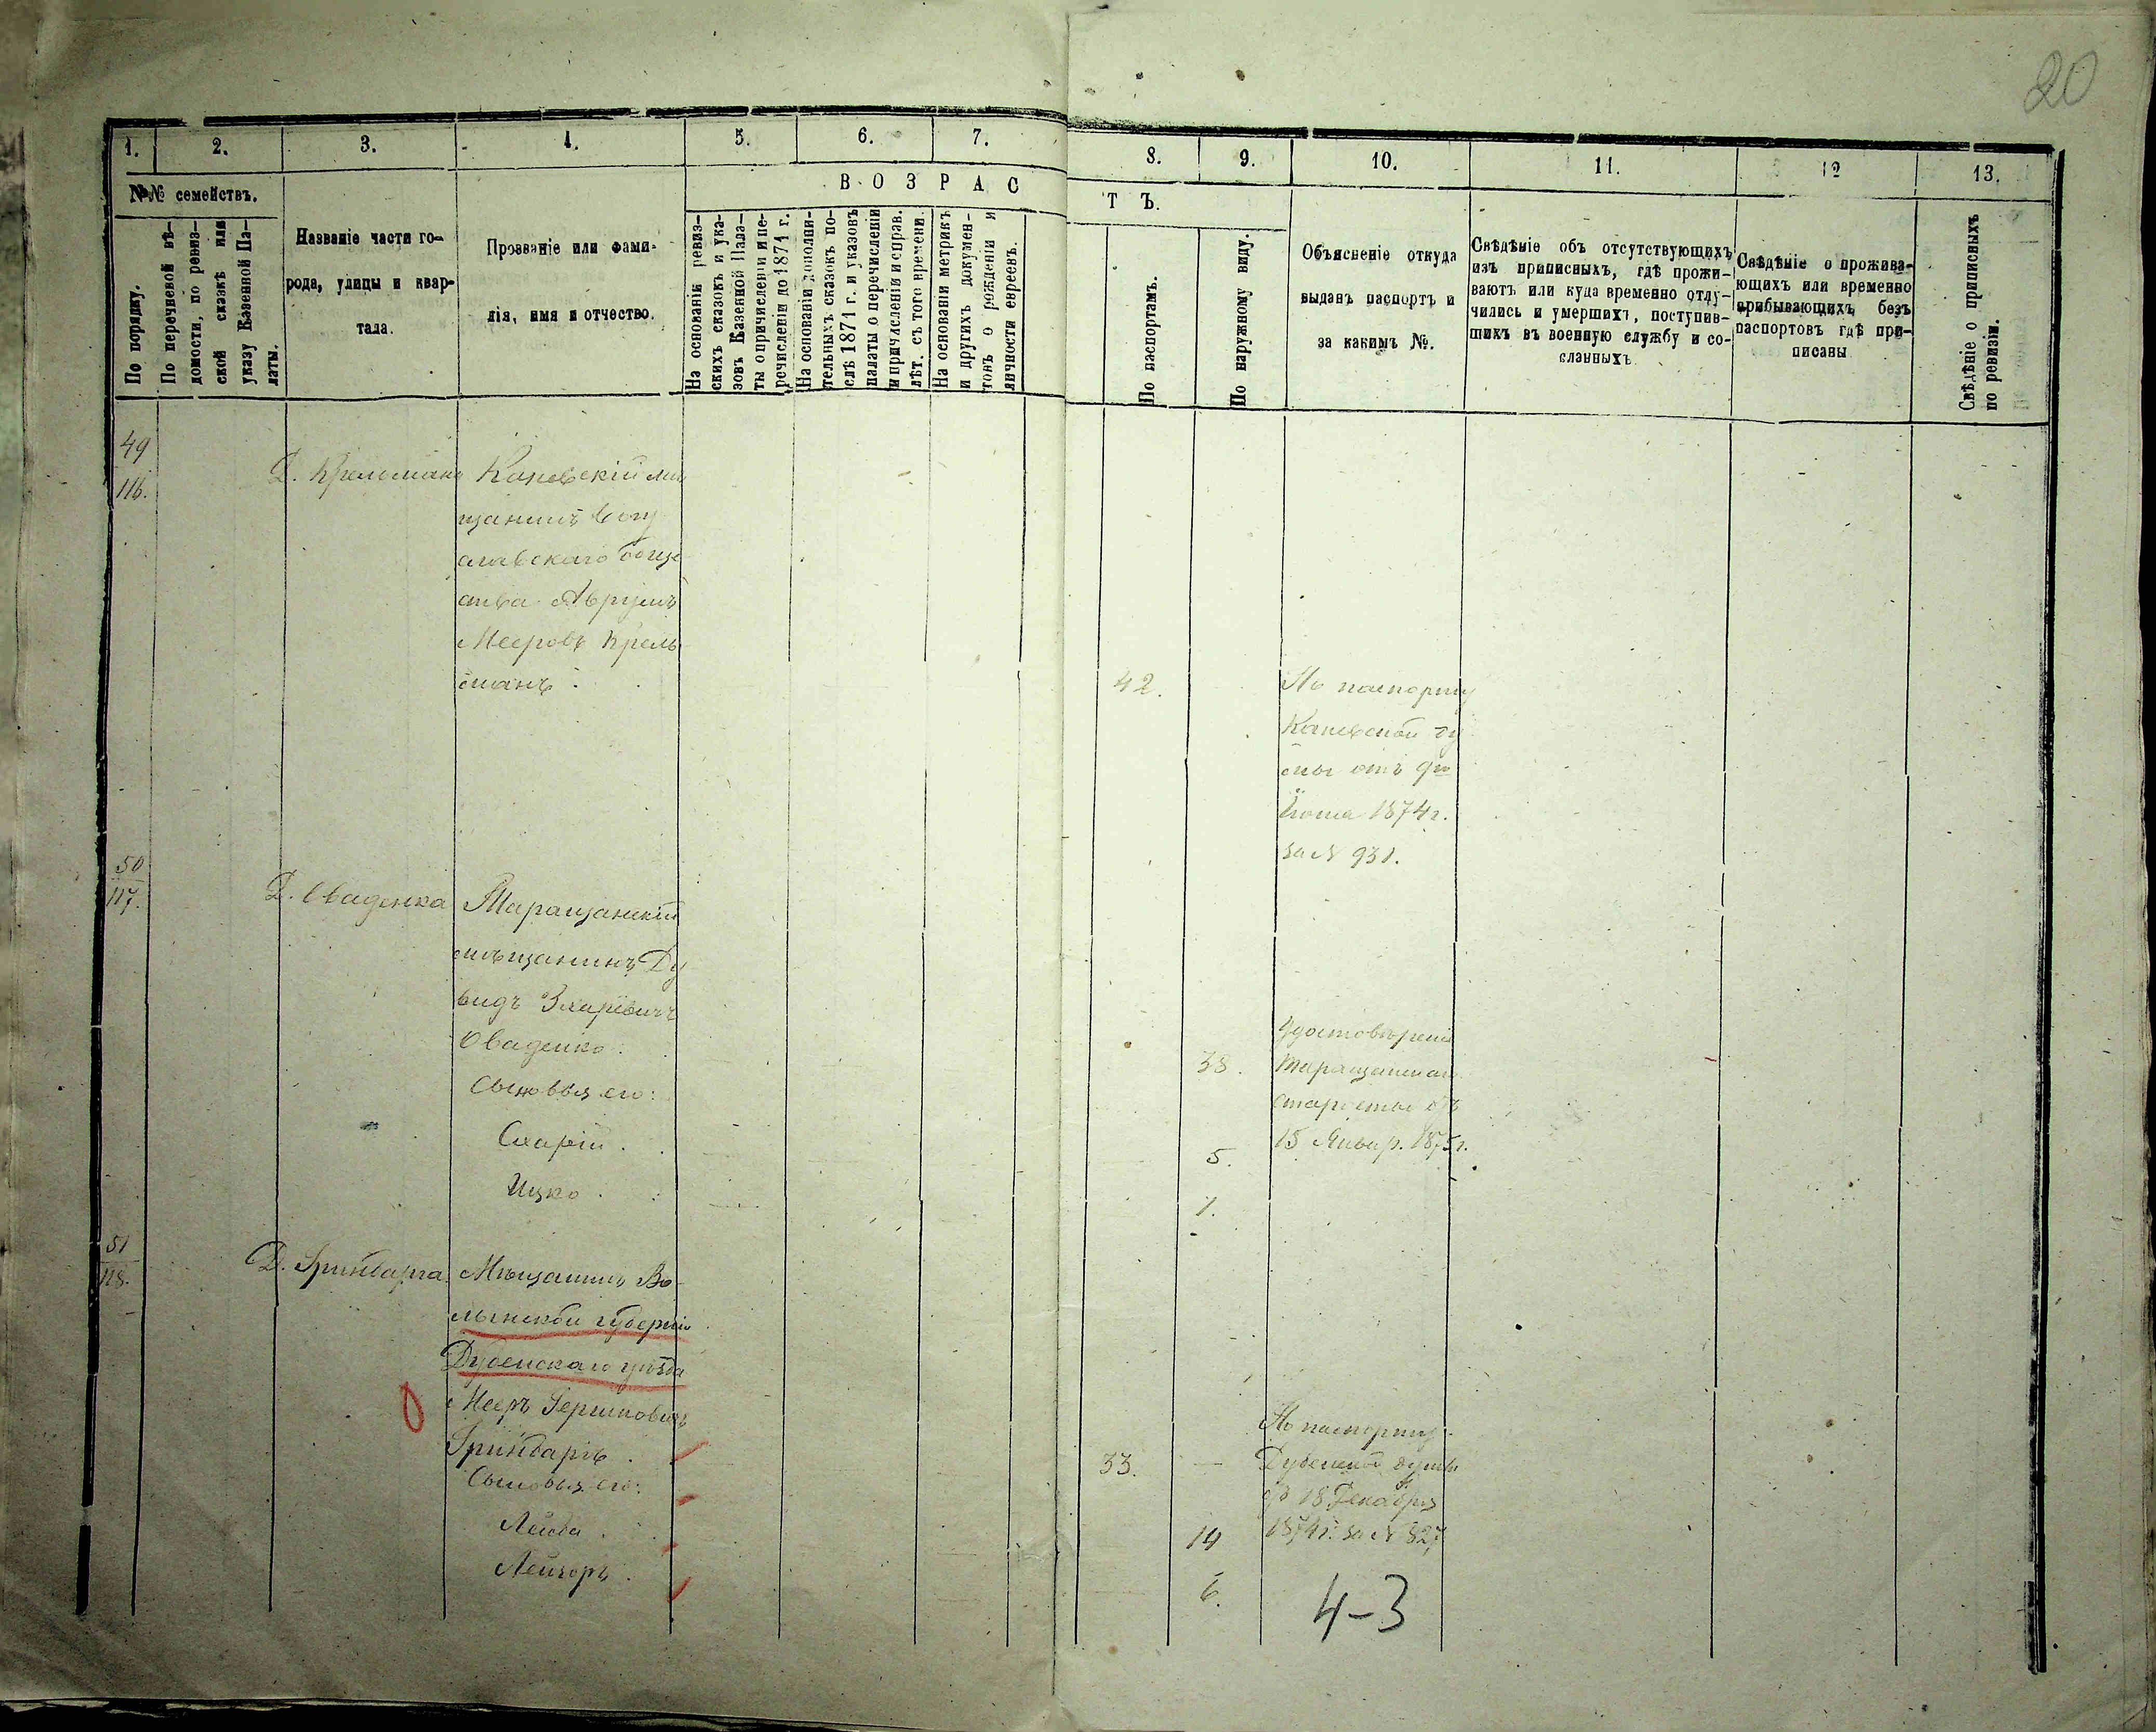 20
1. 2. 3. 4. 5. 6. 7. 8. 9. 10. 11. 12 13.
№№ семействъ.
По порядку.
По перечневой вѣ-
домости, по ревиз-
ской сказкѣ или
указу Казенной Па-
латы.
Названіе части го-
рода, улицы и квар-
тала.
Прозваніе или фами-
лія, имя и отчество.
ВОЗРАС
ТЪ.
На основаніи ревиз-
скихъ сказокъ и ука-
зовъ Казенной Пала-
ты о причисленіи и пе-
речисленіи до 1871 г.
На основаніи дополни-
тельныхъ сказокъ по-
слѣ 1871 г. и указовъ
палаты о перечисленіи
и причисленіи и справ.
лѣт. съ того времени.
На основаніи метрикъ
и другихъ докумен-
товъ о рожденіи и
личности евреевъ.
По паспортамъ.
По наружному виду.
Объясненіе откуда
выданъ паспортъ и
за какимъ №.
Свѣдѣніе объ отсутствующихъ
изъ приписныхъ, гдѣ прожи-
ваютъ или куда временно отлу-
чились и умершихъ, поступив-
шихъ въ военную службу и со-
сланныхъ
Свѣдѣніе о прожива-
ющихъ или временно
прибывающихъ безъ
паспортовъ гдѣ при-
писаны
Свѣдѣніе о приписныхъ
по ревизіи.
49
116.
Д. Крельмана
Каневскій мѣ
щанинъ Богу
славскаго обще
ства Аврумъ
Мееровъ Крель
манъ.
42.
По паспорту
Каневской ду
мы отъ 9го
Іюня 1874 г.
за № 931.
50
117.
Д. Оваденка
Таращанскій
мѣщанинъ Ду
видъ Зхаріевичъ
Оваденко.
38.
Удостовѣреніе
Таращанскаго
старосты отъ
15 Январ. 1875 г.
Сыновья его:
Схарій.
5.
Ицко.
1.
51
118.
Д. Гринбарга
Мѣщанинъ Во-
лынской губерніи
Дубенскаго уѣзда
Мееръ Гершковичъ
Гринбаргъ.
33.
По паспорту
Дубенской думы
отъ 18 Декабря
1874 г. за № 827
Сыновья его:
Лейба.
14
Лейзоръ.
6.
4-3